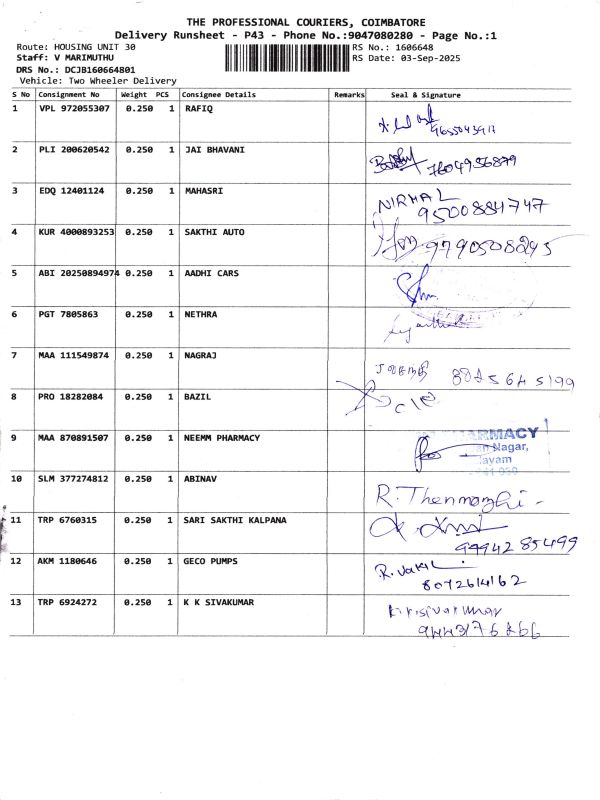 THE PROFESSIONAL COURIERS, COIMBATORE
Delivery Runsheet - P43 - Phone No.:9047080280 - Page No.:1
Route: HOUSING UNIT 30 RS No.: 1606648
Staff: V MARIMUTHU RS Date: 03-Sep-2025
DRS No.: DCJB160664801
Vehicle: Two Wheeler Delivery
S No Consignment No Weight PCS Consignee Details Remarks Seal & Signature
1 VPL 972055307 0.250 1 RAFIQ
2 PLI 200620542 0.250 1 JAI BHAVANI
7604956879
3 EDQ 12401124 0.250 1 MAHASRI NIRMAL
9500884747
4 KUR 4000893253 0.250 1 SAKTHI AUTO
9790508245
5 ABI 20250894974 0.250 1 AADHI CARS
6 PGT 7805863 0.250 1 NETHRA
7 MAA 111549874 0.250 1 NAGRAJ
8 PRO 18282084 0.250 1 BAZIL
9 MAA 870891507 0.250 1 NEEMM PHARMACY
Nagar,
10 SLM 377274812 0.250 1 ABINAV
R. Thenmozhi
11 TRP 6760315 0.250 1 SARI SAKTHI KALPANA
99942 85499
12 AKM 1180646 0.250 1 GECO PUMPS
8072614162
13 TRP 6924272 0.250 1 K K SIVAKUMAR
K.K.Sivakumar